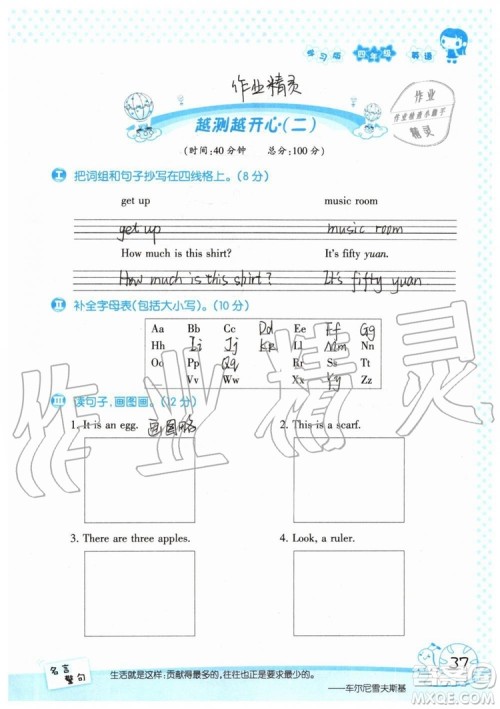 学习版 四年级 英语
作业精灵
作业
作业检查小助手
精灵
越测越开心(二)
(时间:40分钟 总分:100分)
I 把词组和句子抄写在四线格上。(8分)
get up music room
get up music room
How much is this shirt? It's fifty yuan.
How much is this shirt? It's fifty yuan
II 补全字母表(包括大小写)。(10分)
Aa Bb Cc Dd Ee Ff Gg
Hh Ii Jj Kk Ll Mm Nn
Oo Pp Qq Rr Ss Tt
Vv Ww Xx Yy Zz
III 读句子,画图画。(12分)
1. It is an egg. 画图略 2. This is a scarf.
3. There are three apples. 4. Look, a ruler.
作业精灵
37
名言警句
生活就是这样:贡献得最多的,往往也正是要求最少的。
——车尔尼雪夫斯基